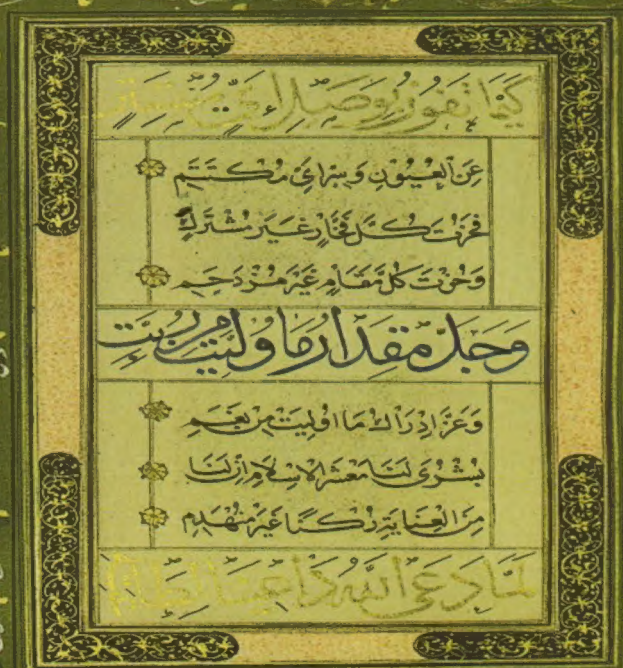 كَيْمَا تَفُوزَ بِوَصْلٍ اَيِّ مُسْتَتِرٍ
عَنِ الْعُيُونِ وَسِرٍّ اَيِّ مُكْتَتَمِ
فَحُزْتَ كُلَّ فَخَارٍ غَيْرَ مُشْتَرَكٍ
وَجُزْتَ كُلَّ مَقَامٍ غَيْرَ مُزْدَحَمِ
وَجَلَّ مِقْدَارُ مَا وُلِّيتَ مِنْ رُتَبٍ
وَعَزَّ اِدْرَاكُ مَا اُولِيتَ مِنْ نِعَمِ
بُشْرَى لَنَا مَعْشَرَ الْاِسْلَامِ اِنَّ لَنَا
مِنَ الْعِنَايَةِ رُكْنًا غَيْرَ مُنْهَدِمِ
لَمَّا دَعَى اللهُ دَاعِينَا